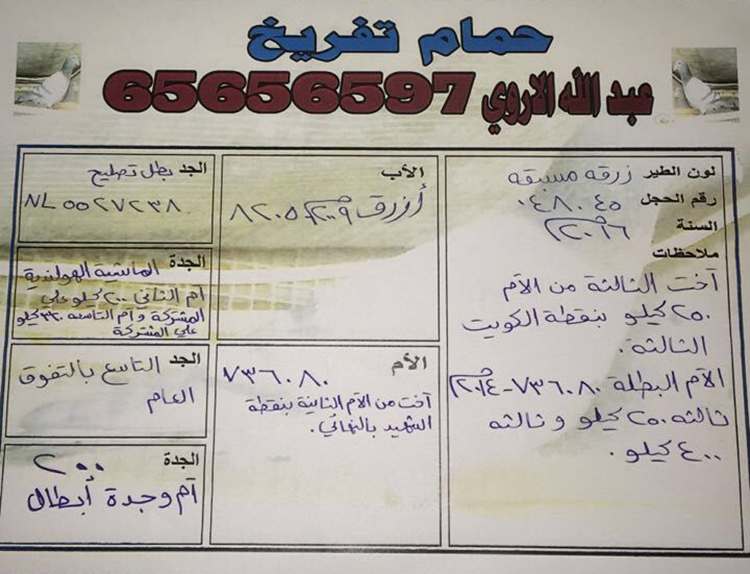 حمام تفريخ
عبد الله الاروي 65656597
لون الطير زرقه مسبقه
رقم الحجل ٠٤٨٠٤٥
السنة ٢٠١٦م
ملاحظات
آخت الثالثة من الآم
٢٥٠ كيلو بنقطة الكويت
الثالثة.
الآم البطلة ٧٣٦٠٨٠-٢٠١٤م
ثالثه ٢٥٠ كيلو و ثالثه
٤٠٠ كيلو.
الأب
أزرق ٢٠٠٩م ٨٢٠٥
الأم ٧٣٦٠٨٠
آخت من الآم الثانية بنقطة
الشهيد بالنهائي.
الجد بطل تصليح
NL ٥٥٢٧٢٣٨
الجدة الماشية الهولندية
آم الثاني ٢٠٠ كيلو علي
المشتركة و آم التاسعه ٣٣٠ كيلو
علي المشتركة
الجد التاسع بالتفوق
العام
الجدة ٢٠٠
آم وجدة أبطال